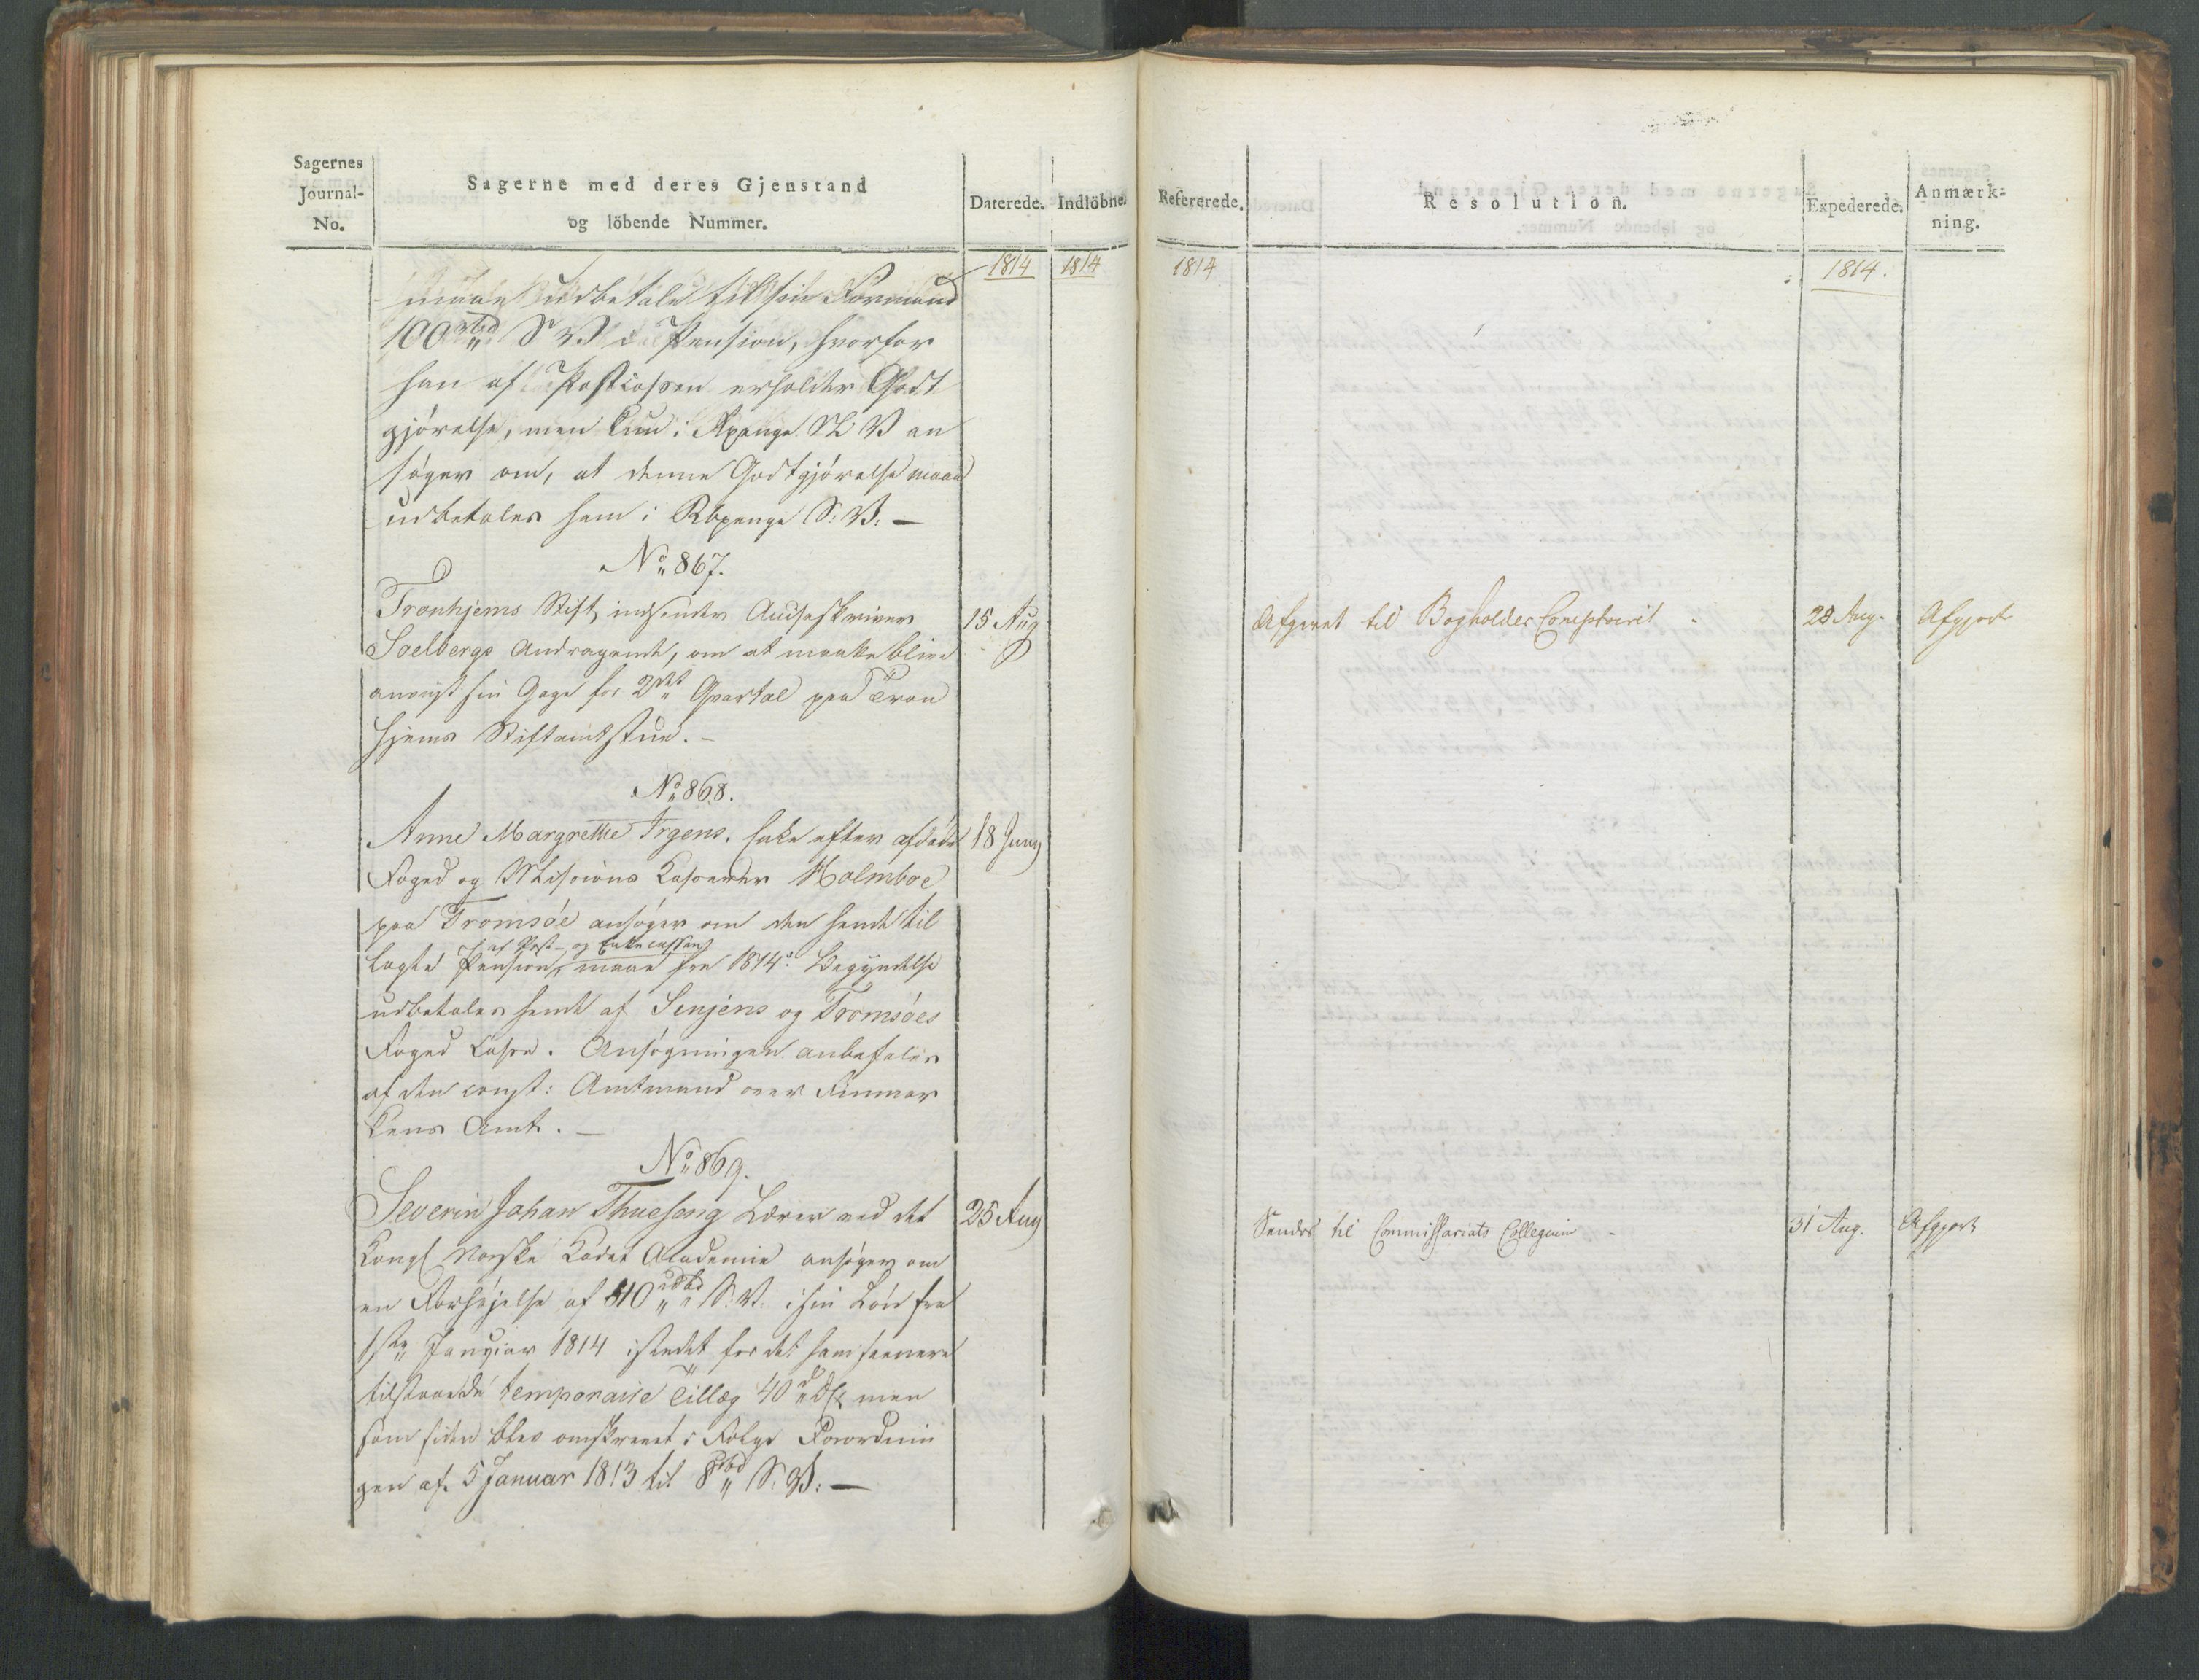 Sagernes
Journal-
No.
Sagerne med deres Gjenstand
og löbende Nummer.
Daterede.
Indlöbne.
Refererede.
Resolution.
Expederede.
Anmærk-
ning.
1814
1814
1814
1814.
maae udbetale til sin Formand
100 rbd S V i Pension, hvorfor
han af Postcassen erholder Godt
gjörelse, men kun i Rbpenge N. V an
söger om, at denne Godtgjörelse maae
udbetales ham i Rbpenge S: V: —
No 867.
Tronhjems Stift, indsender
Soelbergs Andragende, om at maatte blive
anviist sin Gage for 2det Qvartal paa Tron
hjems Stiftamtstue. -
15 Aug
Afgivet til Bogholder Comptoiret
29 Aug.
Afgjort
No 868.
Anne Margrethe Irgens. Enke efter afdöde
Foged og Missions Casserer Holmboe
paa Tromsöe ansöger om den hende til
af Post- og Enkecassen
lagte Pension, maae fra 1814s Begyndelse
udbetales hende af Senjens og Tromsöes
Foged Casse. Ansögningen anbefales
af den const: Amtmand over Finmar
kens Amt. —
18 Juny
No 869.
Severin Johan Thuesang Lærer ved det
Kongl Norske Cadet Academie ansöger om
en Forhöjelse af 810 rbd S. V. i sin Lön fra
1ste Januar 1814 istedet for det ham seenere
tilstaaede temporaire Tillæg 40 men
som siden blev omskrevet i Fölge Forordnin
gen af 5 Januar 1813 til 8 rbd S: V: —
25 Aug
Sendes til Commissariats Collegium
31 Aug.
Afgjort